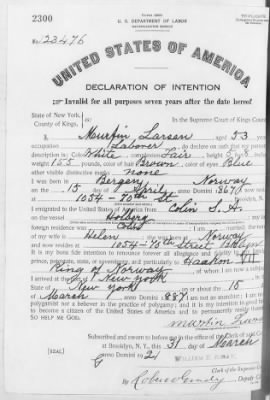 2300
U. S. DEPARTMENT OF LABOR
NATURALIZATION SERVICE
No. 23476
UNITED STATES OF AMERICA
DECLARATION OF INTENTION
Invalid for all purposes seven years after the date hereof
State of New York,
County of Kings, In the Supreme Court of Kings County
I, Martin Larsen aged 53
occupation Laborer do declare on oath that my personal
description is: Color White complexion Fair height 5
155 pounds, color of hair Brown color of eyes Blue
other visible distinctive marks none
I was born in Bergen, Norway
on the 15 day of April anno Domini 1867 I now reside
at 1054-70th St
I emigrated to the United States of America from Colon S. A.
on the vessel Holberg
foreign residence was Colon
wife is Helen she was born in Norway
and now resides at 1054-70th Street Bklyn
It is my bona fide intention to renounce forever all allegiance and fidelity
prince, potentate, state, or sovereignty, and particularly to Haakon VII
King of Norway of whom I am now a subject
I arrived at the port of New York
State of New York on or about the 15
March anno Domini 1887 I am not an anarchist; I am not a
polygamist nor a believer in the practice of polygamy; and it is my intention in good
to become a citizen of the United States of America and to permanently reside therein
SO HELP ME GOD.
Subscribed and sworn to before me in the office of the Clerk of
at Brooklyn, N. Y., this 31 day of March
anno Domini 1921
[SEAL]
Clerk of the Supreme
By Deputy